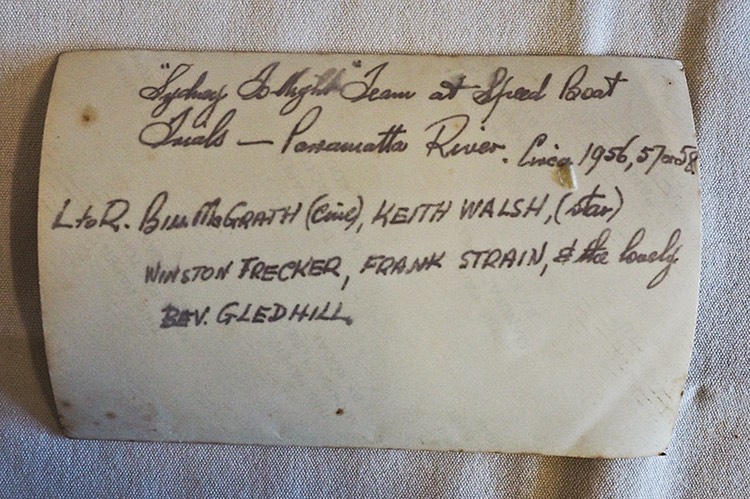 "Sydney To-Night" Team at Speed Boat
Trials — Parramatta River. Circa 1956, 57 or 58.
L to R. BILL McGRATH (cine), KEITH WALSH, (star)
WINSTON TRECKER, FRANK STRAIN, & the lovely
BEV. GLEDHILL.